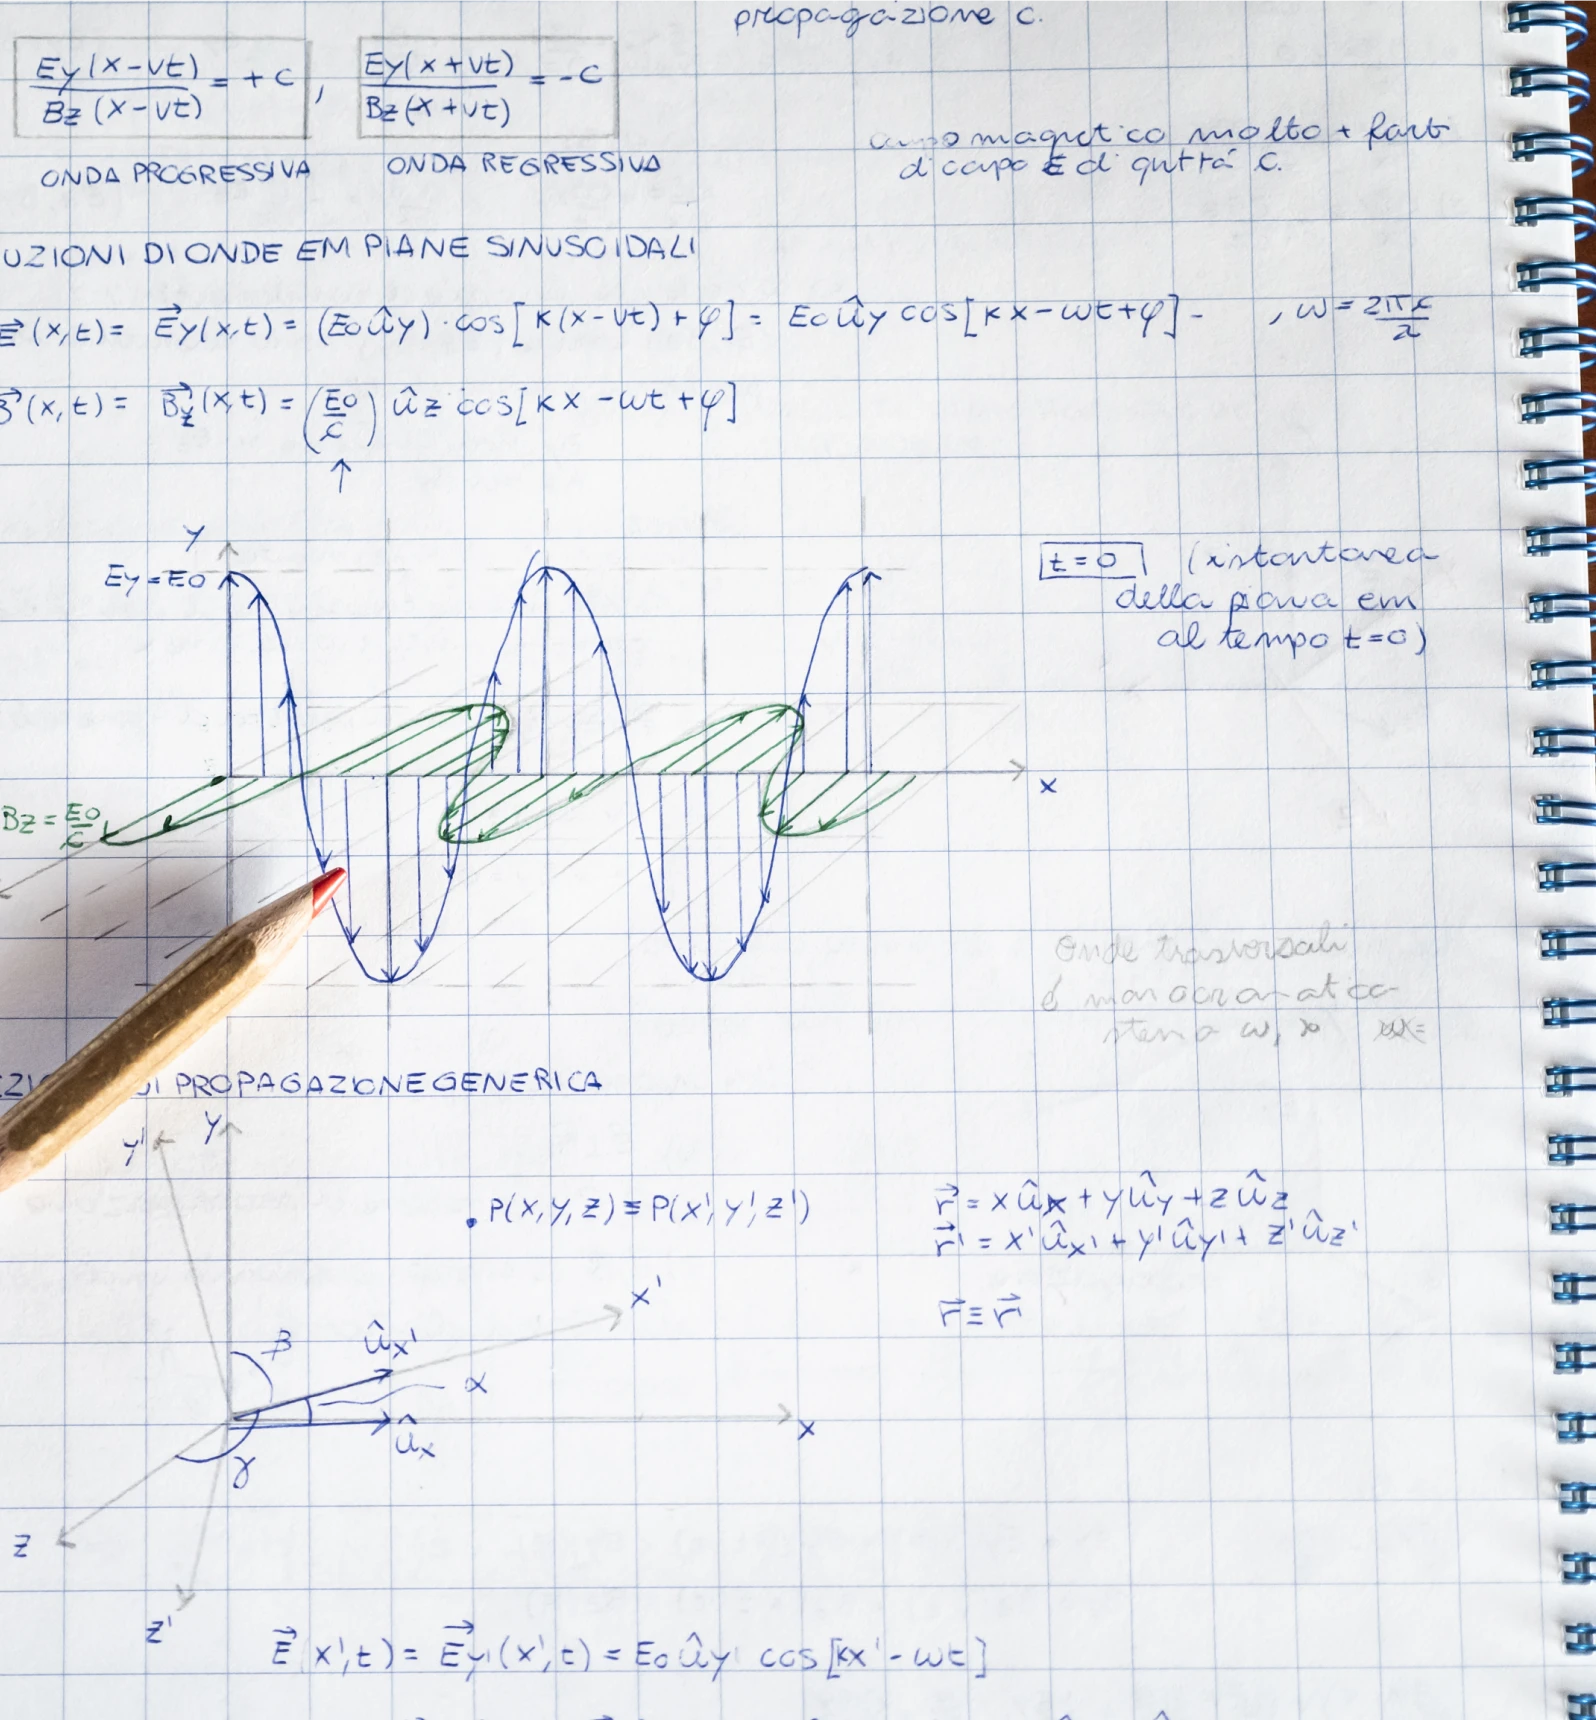 propagazione c.
Ey(x-vt)/Bz(x-vt) = +c , Ey(x+vt)/Bz(x+vt) = -c
ONDA PROGRESSIVA ONDA REGRESSIVA
magnetico molto + fort
di E di c.
UZIONI DI ONDE EM PIANE SINUSOIDALI
E⃗(x,t) = E⃗y(x,t) = (E0 ûy)·cos[k(x-vt)+φ] = E0 ûy cos[kx-ωt+φ]- , ω = 2πc/λ
B⃗(x,t) = B⃗z(x,t) = (E0/c) ûz cos[kx-ωt+φ]
↑
y
Ey=E0
t=0 (istantanea
della piana em
al tempo t=0)
x
Bz=E0/c
Onde trasversali
é
ω, 
DI PROPAGAZIONE GENERICA
y' y
.P(x,y,z)≡P(x',y',z')
r⃗ = xûx + yûy + zûz
r⃗' = x'ûx' + y'ûy' + z'ûz'
r⃗≡r⃗'
x'
β ûx'
α
x
ûx
γ
z
z'
E⃗(x',t) = E⃗y'(x',t) = E0 ûy' cos[kx'-ωt]